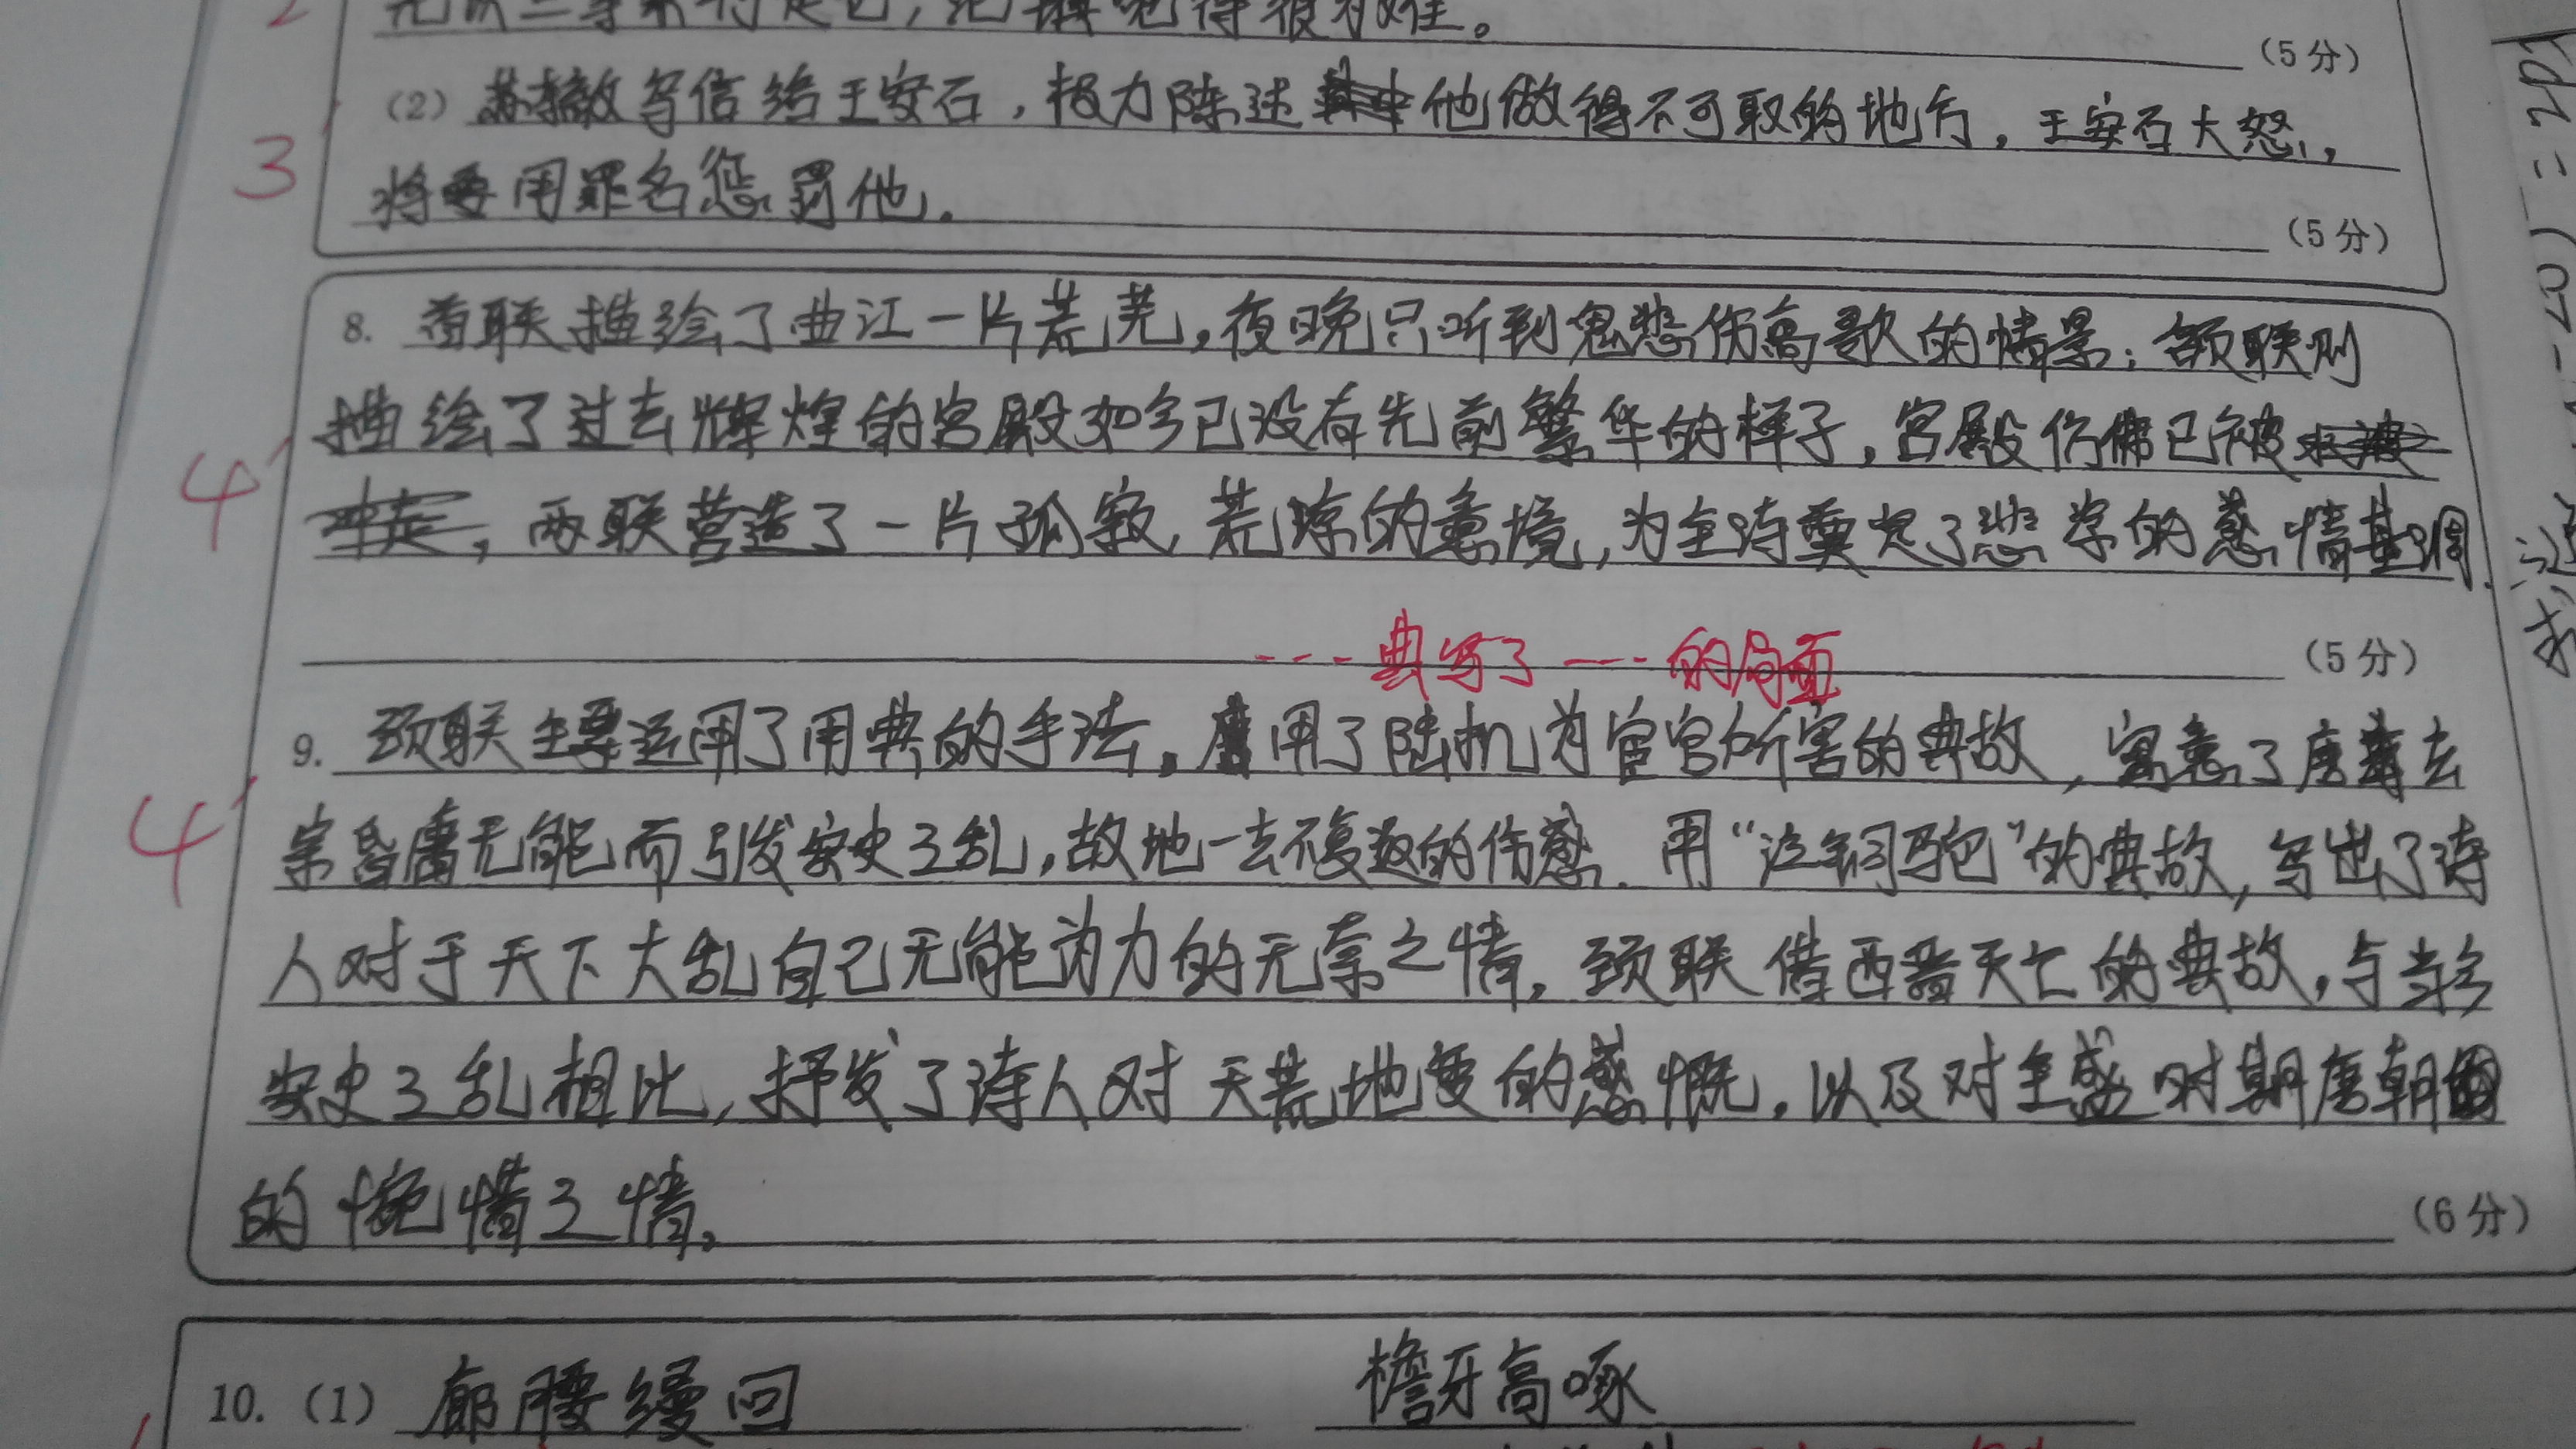 (5分)
(2) 苏辙写信给王安石，极力陈述他做得不可取的地方，王安石大怒，
3
将要用罪名惩罚他。
(5分)
8. 首联描绘了曲江一片荒芜，夜晚只听到鬼悲伤高歌的情景；颔联则
描绘了过去辉煌的宫殿如今已没有先前繁华的样子，宫殿仿佛已被
4
，两联营造了一片孤寂，荒凉的意境，为全诗奠定了悲凉的感情基调.
---典写了----的局面
(5分)
9. 颈联主要运用了用典的手法。用了陆机为宦官所害的典故，寓意了唐玄
4
宗昏庸无能而引发安史之乱，故地一去不复返的伤感. 用“泣铜驼”的典故，写出了诗
人对于天下大乱自己无能为力的无奈之情。颈联借西晋灭亡的典故，与当今
安史之乱相比，抒发了诗人对天荒地变的感慨，以及对全盛时期唐朝
的惋惜之情。
(6分)
10. (1) 廊腰缦回 檐牙高啄